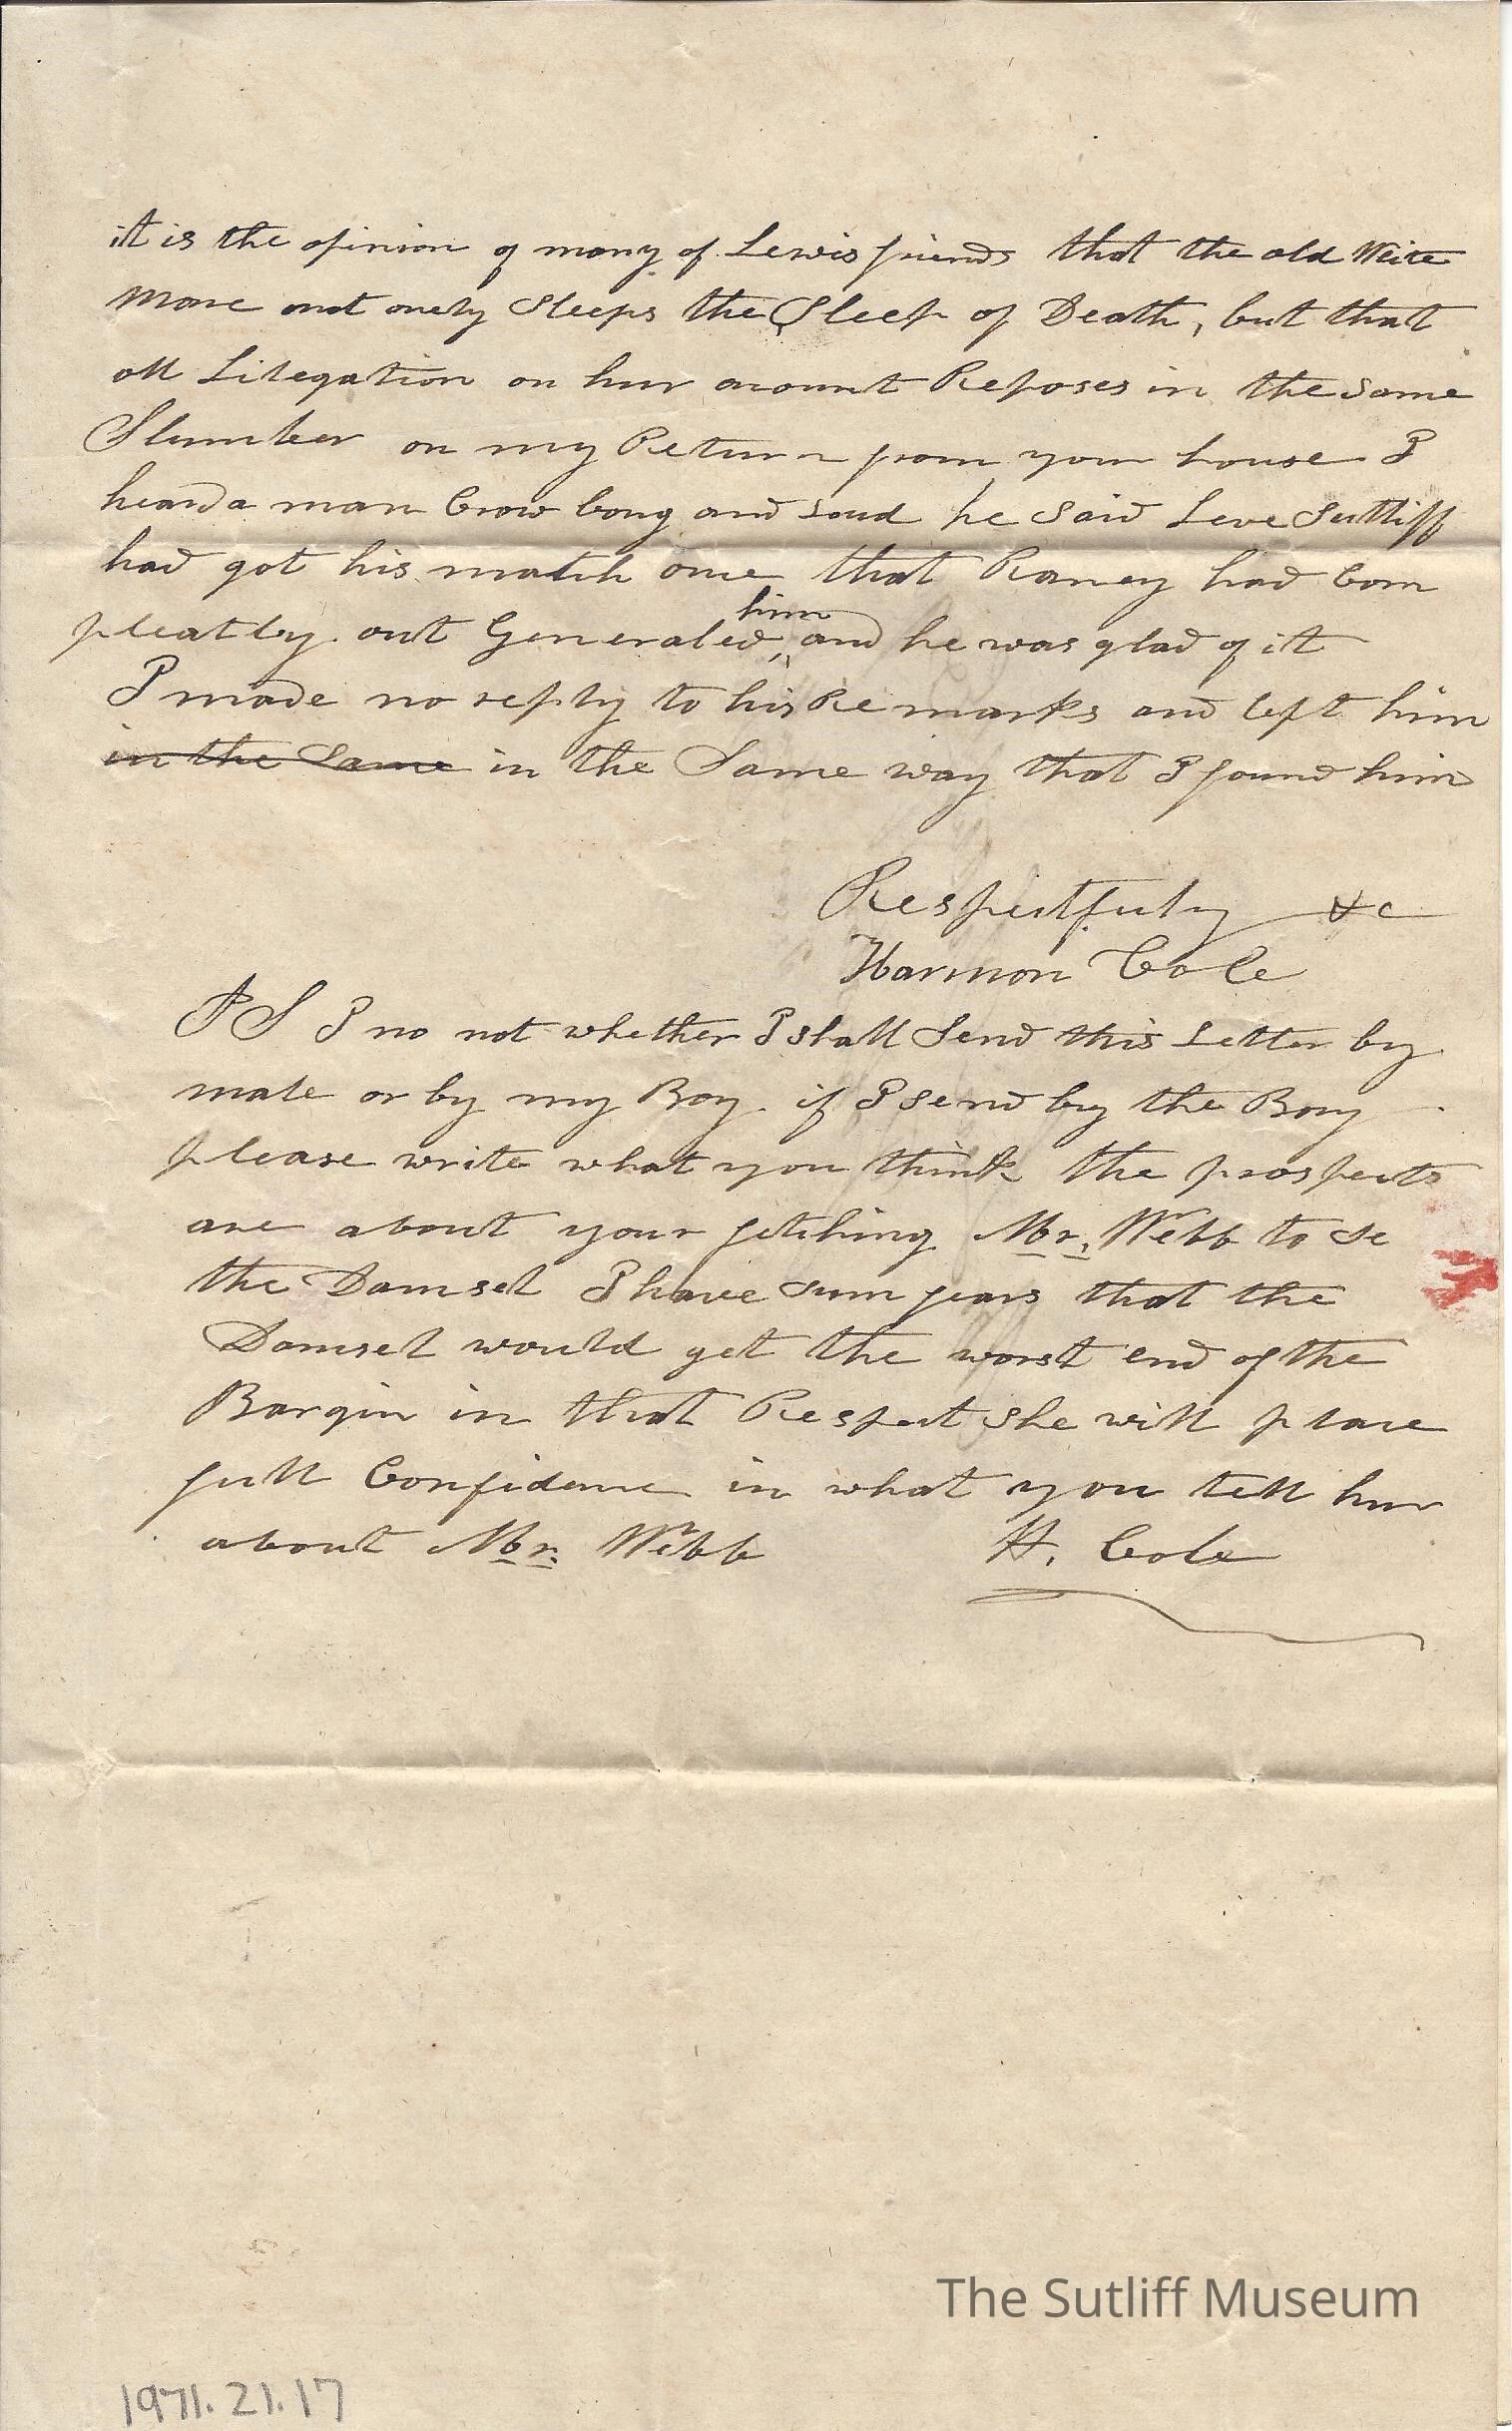 it is the opinion of many of Lewis friends that the old White
Mare not onely Sleeps the Sleep of Death, but that
all Litegation on hur acount Reposes in the same
Slumber on my Return from your house I
heard a man Crow long and loud he said Leve Sutliff
had got his match once that Raney had Com
pleatly out Generaled, him and he was glad of it
I made no reply to his Remarks and left him
in the Same in the Same way that I found him
Respectfuly &c
Harmon Cole
P S I no not whether I shall Send this Letter by
male or by my Boy if I send by the Boy
please write what you think the prospects
are about your fetching Mr. Webb to se
the Damsel I have sum fears that the
Damsel would get the worst end of the
Bargin in that Respect she will place
full Confidence in what you tell hur
about Mr. Webb H. Cole
The Sutliff Museum
1971.21.17